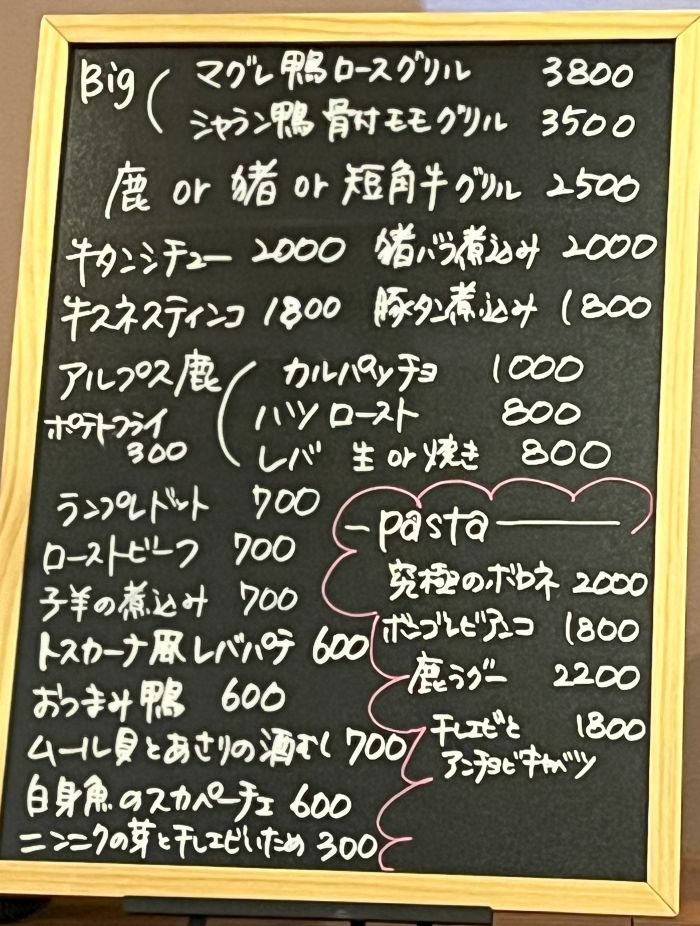 Big
マグレ鴨ロースグリル 3800
シャラン鴨骨付モモグリル 3500
鹿 or 猪 or 短角牛グリル 2500
牛タンシチュー 2000 猪バラ煮込み 2000
牛スネスティンコ 1800 豚タン煮込み 1800
アルプス鹿
カルパッチョ 1000
ハツロースト 800
レバ 生 or 焼き 800
ポテトフライ
300
ランプレドット 700
ローストビーフ 700
子羊の煮込み 700
トスカーナ風レバパテ 600
おつまみ鴨 600
ムール貝とあさりの酒むし 700
白身魚のスカペーチェ 600
ニンニクの芽と干しエビいため 300
pasta
究極のボロネ 2000
ボンゴレビアンコ 1800
鹿ラグー 2200
干しエビと 1800
アンチョビキャベツ